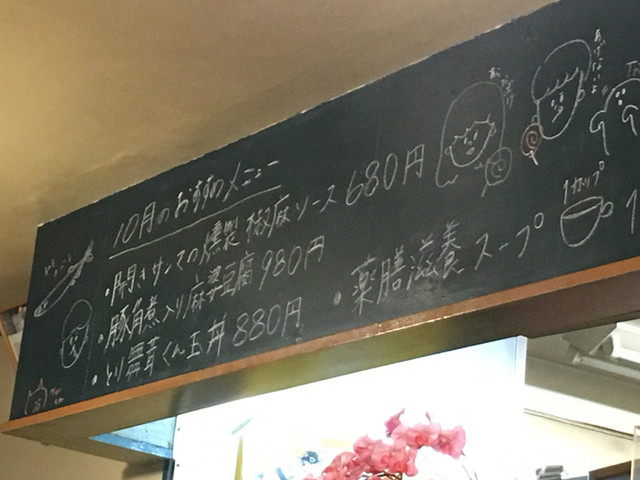 10月のおすすめメニュー
・開きサンマの燻製 椒麻ソース 680円
・豚角煮入り麻婆豆腐 980円
・とり舞茸くん玉丼 880円
・薬膳滋養スープ
1カップ